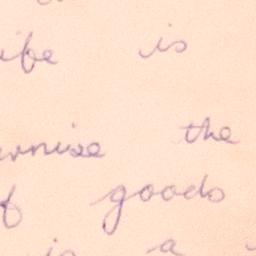 ife is
ernise the
f goods
is a